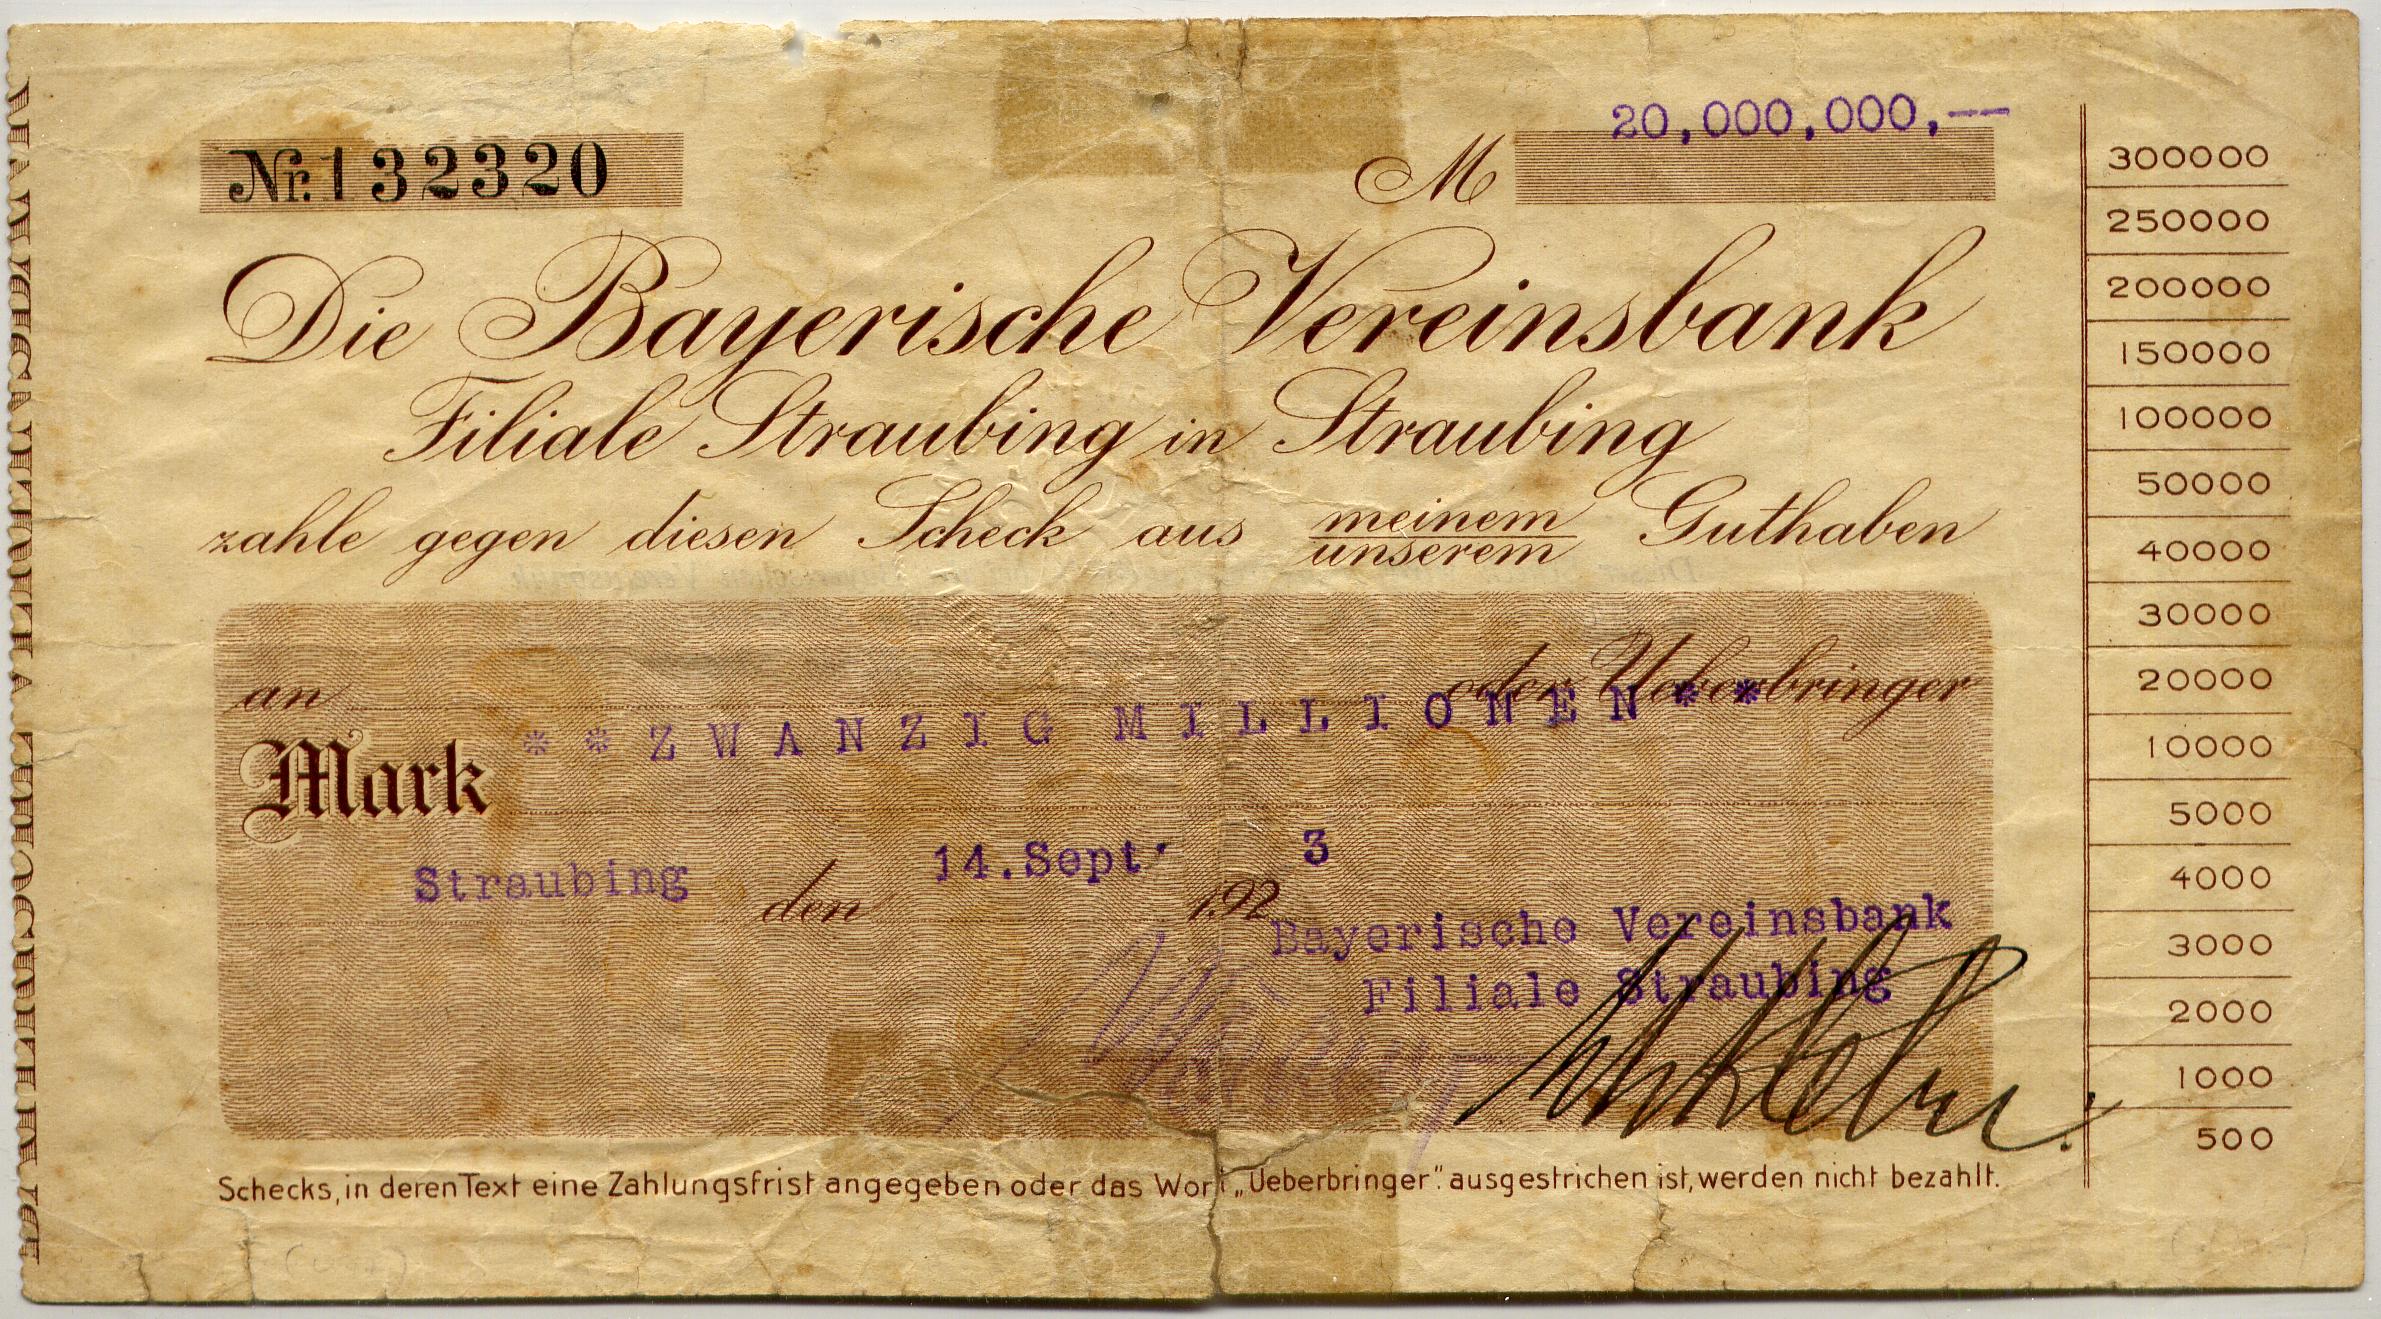 20,000,000,—
Nr. 132320
M
Die Bayerische Vereinsbank
Filiale Straubing in Straubing
zahle gegen diesen Scheck aus meinem
unserem Guthaben
an oder Ueberbringer
Mark * * ZWANZIG MILLIONEN * *
Straubing den 14.Sept. 192 3
Bayerische Vereinsbank
Filiale Straubing
Schecks, in deren Text eine Zahlungsfrist angegeben oder das Wort „Ueberbringer" ausgestrichen ist, werden nicht bezahlt.
300000
250000
200000
150000
100000
50000
40000
30000
20000
10000
5000
4000
3000
2000
1000
500